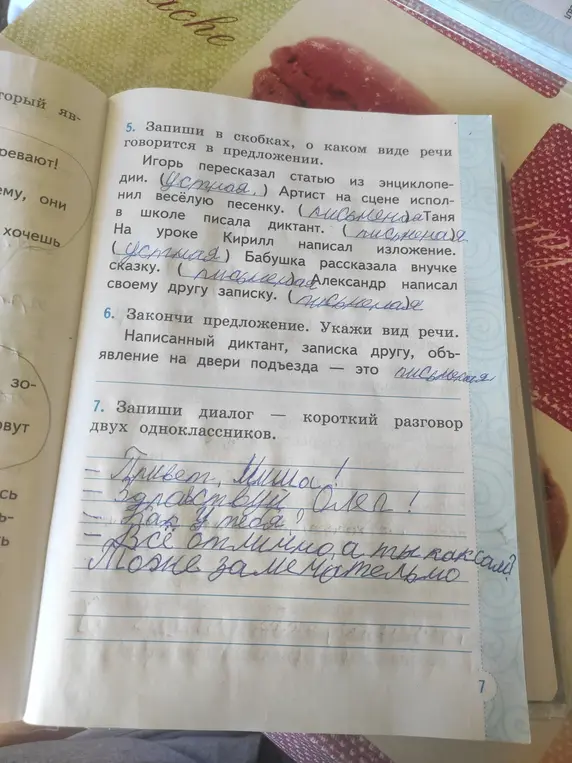 ache
торый яв-
ревают!
ему, они
хочешь
зо-
рвут
сь
ь-
ь
5. Запиши в скобках, о каком виде речи
говорится в предложении.
Игорь пересказал статью из энциклопе-
дии. (устная.) Артист на сцене испол-
нил весёлую песенку. (письменная Таня
в школе писала диктант. (письменая
На уроке Кирилл написал изложение.
(устная) Бабушка рассказала внучке
сказку. (письменая Александр написал
своему другу записку. (письменая
6. Закончи предложение. Укажи вид речи.
Написанный диктант, записка другу, объ-
явление на двери подъезда — это письменая
7. Запиши диалог — короткий разговор
двух одноклассников.
– Привет, Миша!
– Здравствуй, Олег!
– Как у тебя?
– Всё отлично, а ты как сам?
Тоже замечательно
7